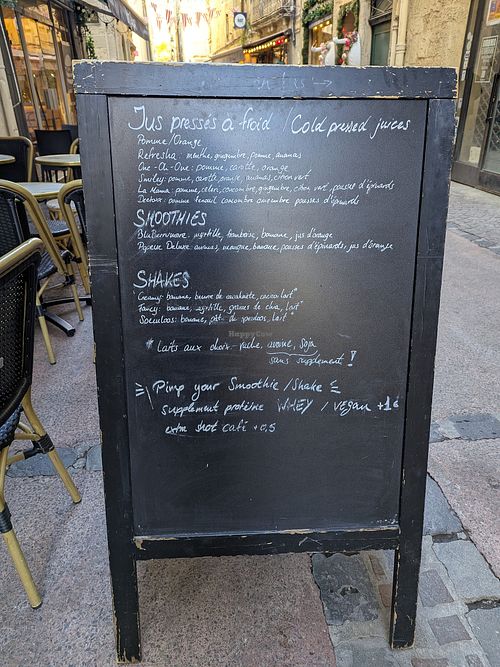 Jus pressés à froid / Cold pressed juices
Pomme / Orange
Refresha: menthe, gingembre, pomme, ananas
One-Oh-One: pomme, carotte, orange
Smiley: pomme, carotte, orange, ananas, citron vert
La Mama: pomme, céleri, concombre, gingembre, citron vert, pousses d'épinards
Detox: pomme fenouil concombre gingembre pousses d'épinards
SMOOTHIES
myrtille, framboise, banane, jus d'orange
Popeye Deluxe: ananas, mangue, banane, pousses d'épinards, jus d'orange
SHAKES
Creamy: banane, beurre de cacahuète, cacao, lait*
Fancy: banane, myrtille, graines de chia, lait*
Speculoos: banane, pâte de speculoos, lait*
* Laits aux choix: vache, avoine, soja
sans supplément!
Pimp your Smoothie / Shake
supplément protéine WHEY / VEGAN +1€
extra shot café +0,5
HappyCow